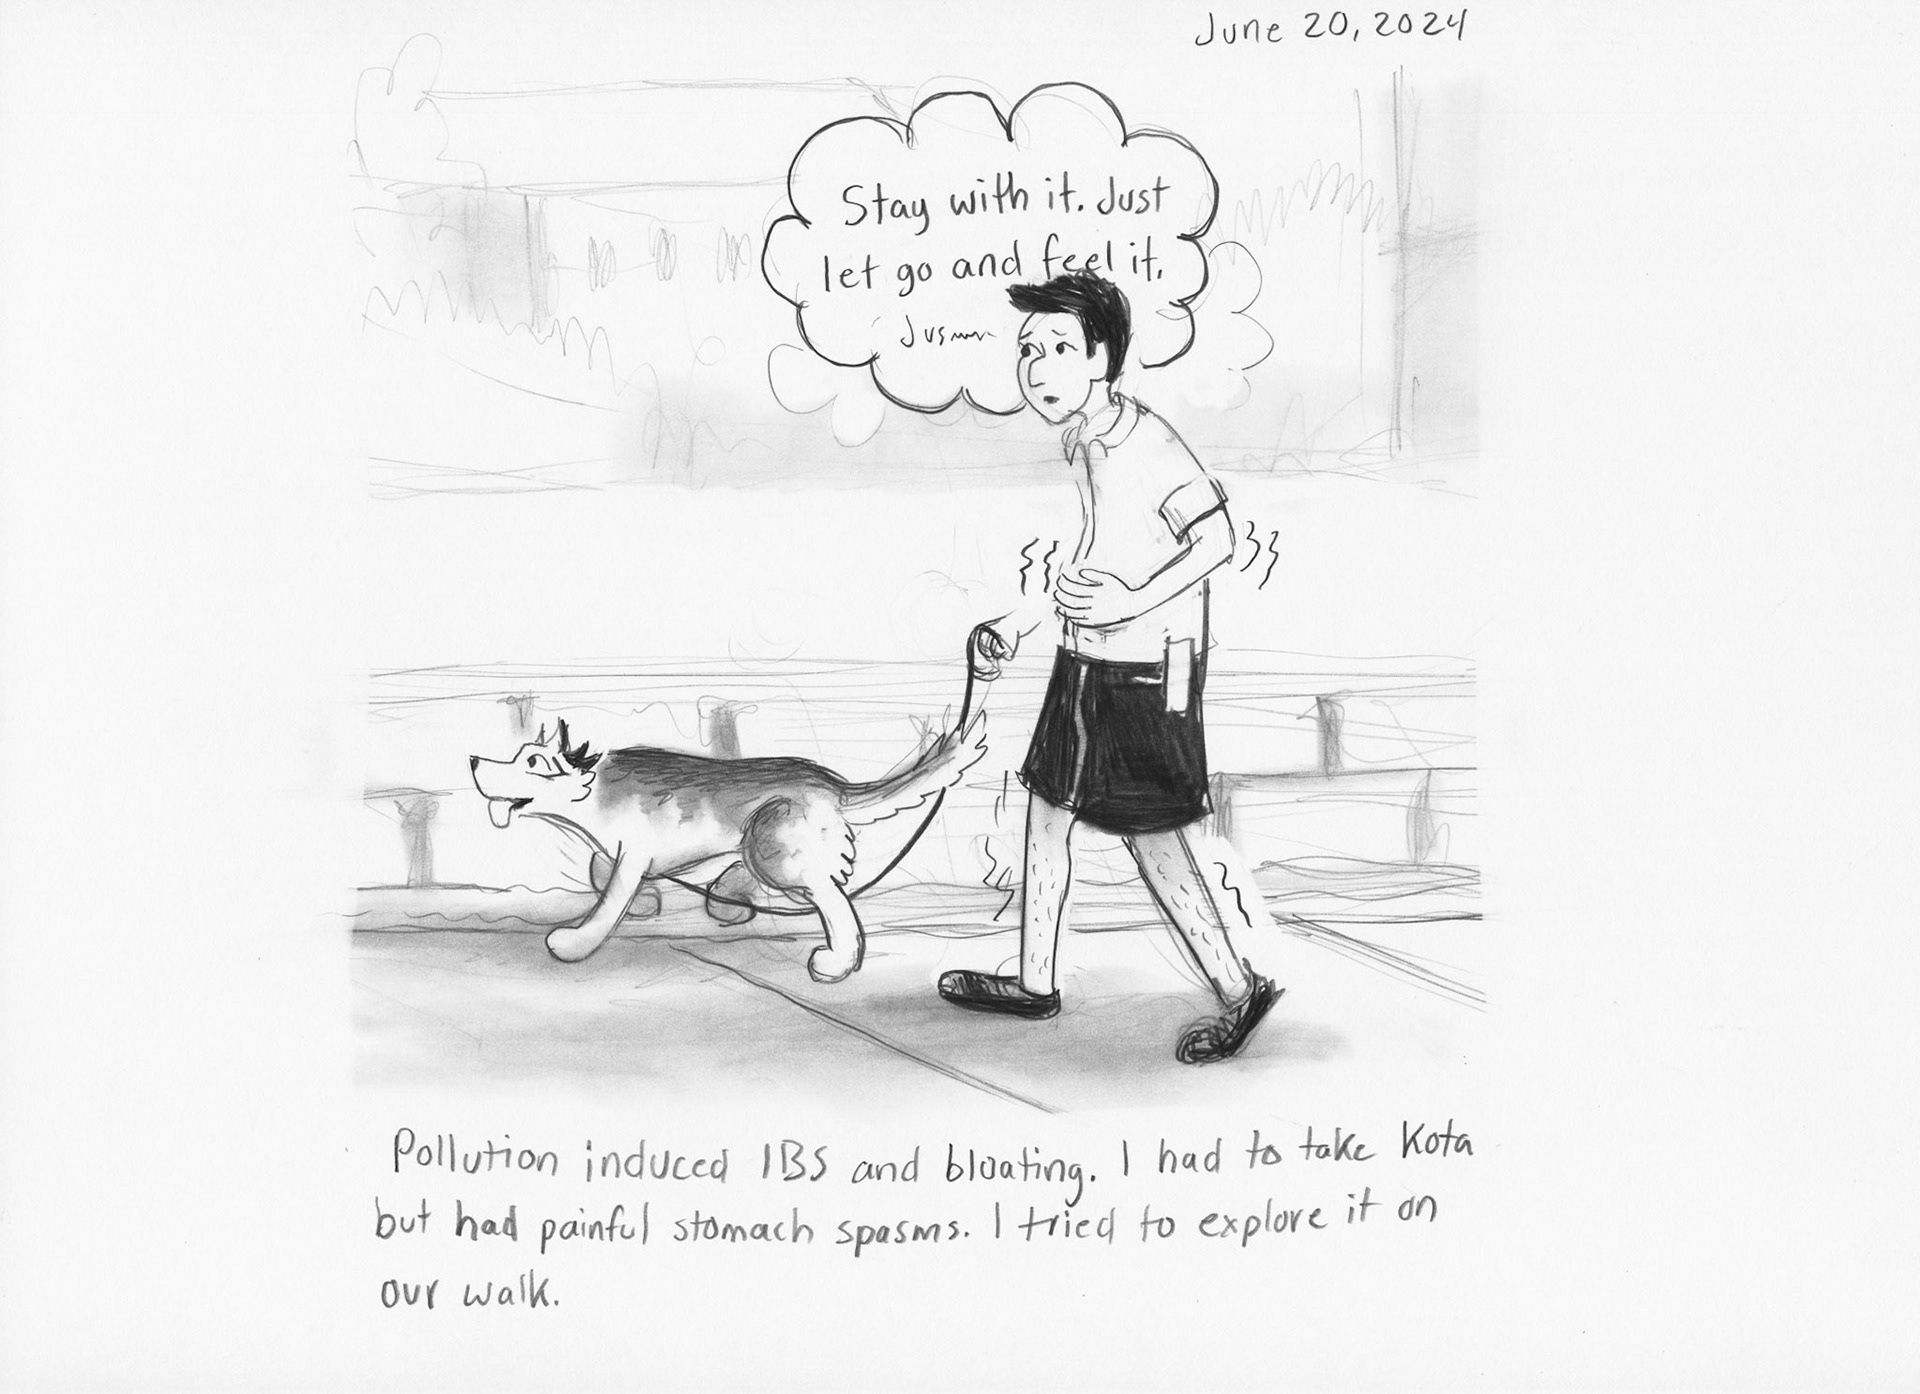 June 20, 2024
Stay with it. Just
let go and feel it.
Pollution induced IBS and bloating. I had to take Kota
but had painful stomach spasms. I tried to explore it on
our walk.